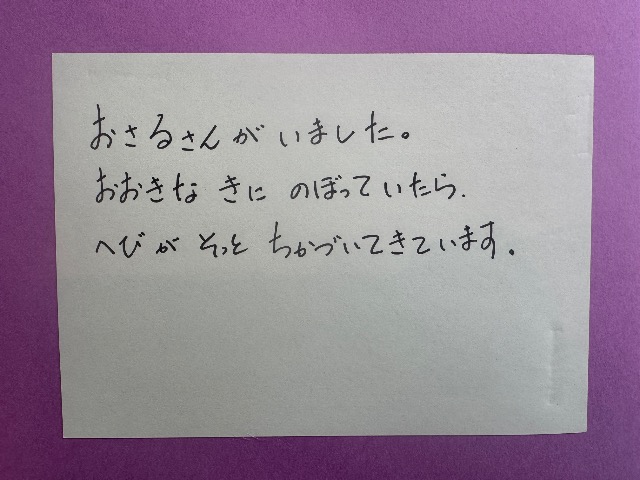 おさるさんが いました。
おおきな きに のぼっていたら.
へびが そっと ちかづいてきています.